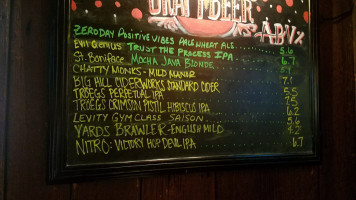 DRAFT BEER
ABV%
ZERODAY POSITIVE VIBES PALE WHEAT ALE 5.6
EVIL GENIUS TRUST THE PROCESS IPA 6.7
ST. BONIFACE MOCHA JAVA BLONDE
CHATTY MONKS - MILD MANOR
BIG HILL CIDERWORKS STANDARD CIDER
TROEGS PERPETUAL IPA 7.5
TROEGS CRIMSON PISTIL HIBISCUS IPA
LEVITY GYM CLASS SAISON 5.6
YARDS BRAWLER - ENGLISH MILD 4.2
NITRO: VICTORY HOP DEVIL IPA 6.7